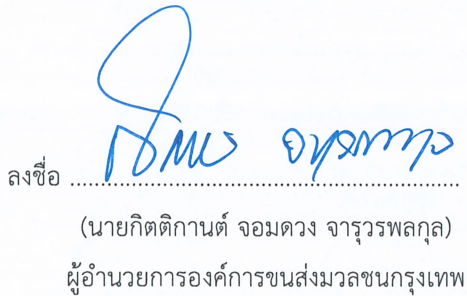 ลงชื่อ ........................................................
(นายกิตติกานต์ จอมดวง จารุวรพลกุล)
ผู้อำนวยการองค์การขนส่งมวลชนกรุงเทพ